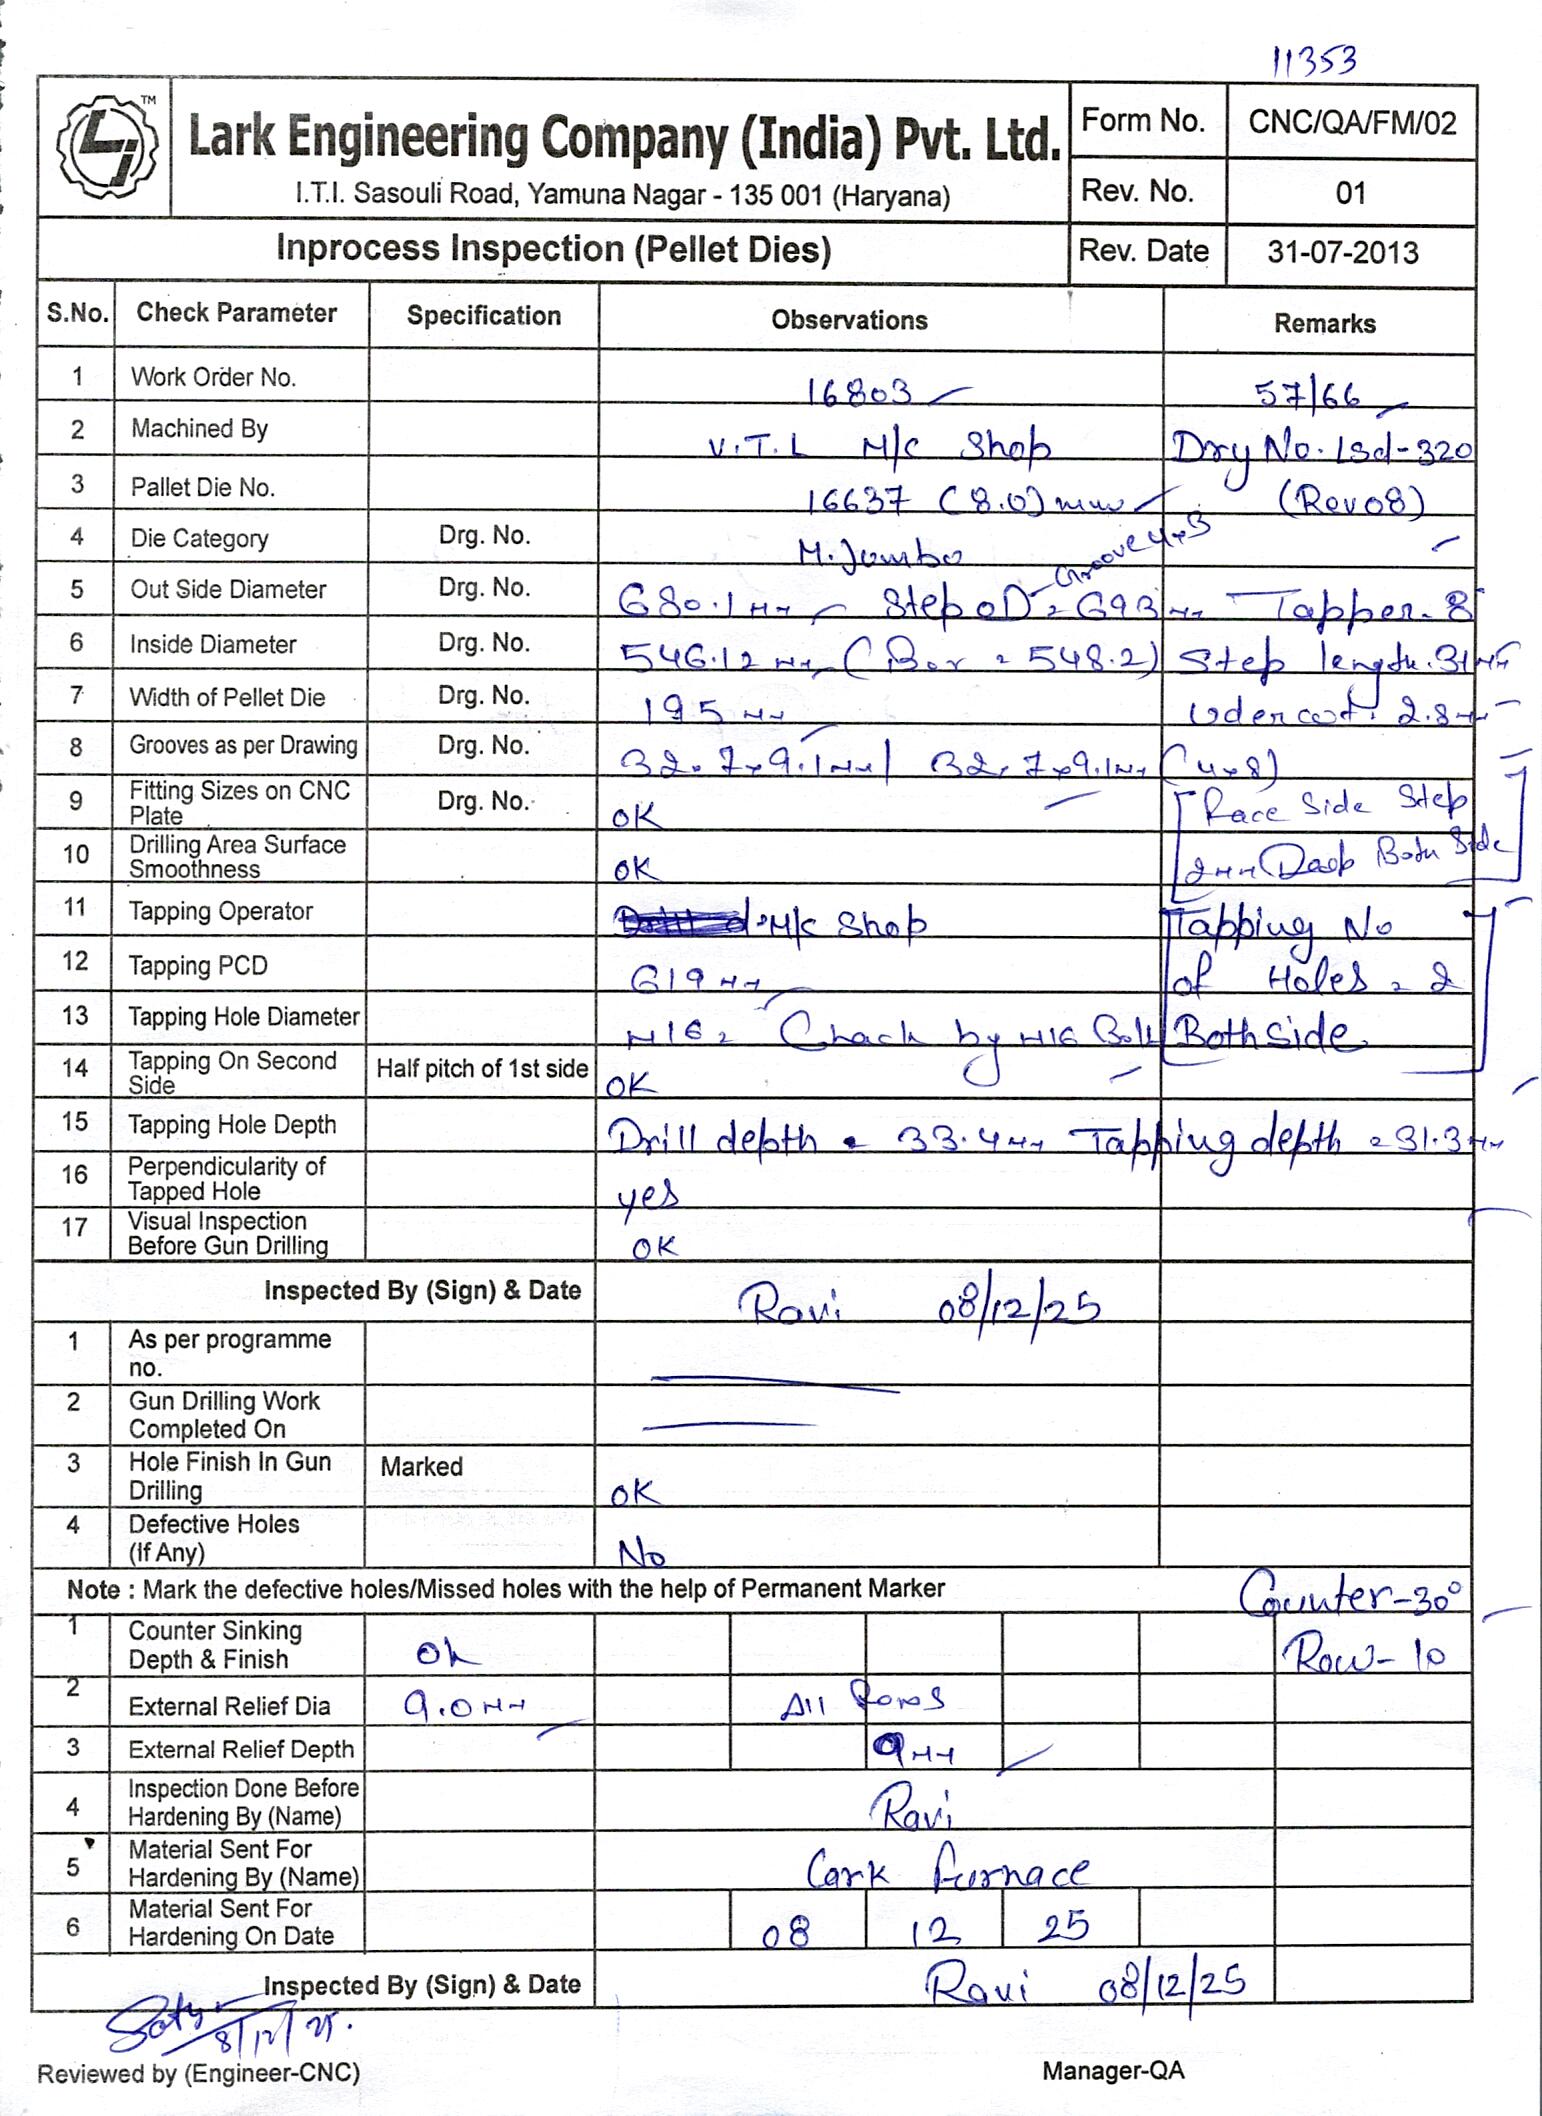 11353
TM
Lark Engineering Company (India) Pvt. Ltd.
I.T.I. Sasouli Road, Yamuna Nagar - 135 001 (Haryana)
Form No. CNC/QA/FM/02
Rev. No. 01
Inprocess Inspection (Pellet Dies) Rev. Date 31-07-2013
S.No. Check Parameter Specification Observations Remarks
1 Work Order No. 16803 57/66
2 Machined By V.T.L M/c Shop Drg No. Lsd-320
3 Pallet Die No. 16637 (8.0) mm (Rev08)
4 Die Category Drg. No. M. Jumbo Groove 4x3
5 Out Side Diameter Drg. No. 680.1 mm Step OD = 693 mm Tapper - 8
6 Inside Diameter Drg. No. 546.12 mm (Bor = 548.2) Step length. 31 mm
7 Width of Pellet Die Drg. No. 195 mm Udercut. 2.8 mm
8 Grooves as per Drawing Drg. No. 32.7x9.1mm / 32.7x9.1mm (4x8)
9 Fitting Sizes on CNC Plate Drg. No. OK Race Side Step
10 Drilling Area Surface Smoothness OK 2mm Deep Both Side
11 Tapping Operator M/c Shop Tapping No
12 Tapping PCD 619 mm of Holes = 2
13 Tapping Hole Diameter M16 = Chack by M16 Bolt Both Side
14 Tapping On Second Side Half pitch of 1st side OK
15 Tapping Hole Depth Drill depth = 33.4mm Tapping depth = 31.3mm
16 Perpendicularity of Tapped Hole yes
17 Visual Inspection Before Gun Drilling OK
Inspected By (Sign) & Date Ravi 08/12/25
1 As per programme no.
2 Gun Drilling Work Completed On
3 Hole Finish In Gun Drilling Marked OK
4 Defective Holes (If Any) No
Note : Mark the defective holes/Missed holes with the help of Permanent Marker Counter-30°
1 Counter Sinking Depth & Finish Ok Row- 10
2 External Relief Dia 9.0mm All Rows
3 External Relief Depth 9mm
4 Inspection Done Before Hardening By (Name) Ravi
5 Material Sent For Hardening By (Name) Lark furnace
6 Material Sent For Hardening On Date 08 12 25
Inspected By (Sign) & Date Ravi 08/12/25
8/12/25.
Reviewed by (Engineer-CNC) Manager-QA